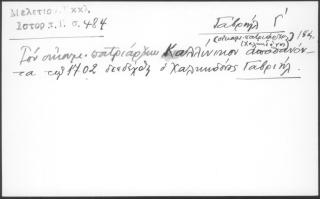 Μελετίου Ἐκκλ.
Ἱστορ. τ. Γ. σ. 484
Γαβριὴλ Γ΄
(οἰκουμ. πατριάρχης)
(Χαλκηδόνος)
Τὸν οἰκουμ. πατριάρχην Καλλίνικον ἀποθανόν-
τα τῷ 1702 διεδέχθη ὁ Χαλκηδόνος Γαβριήλ.